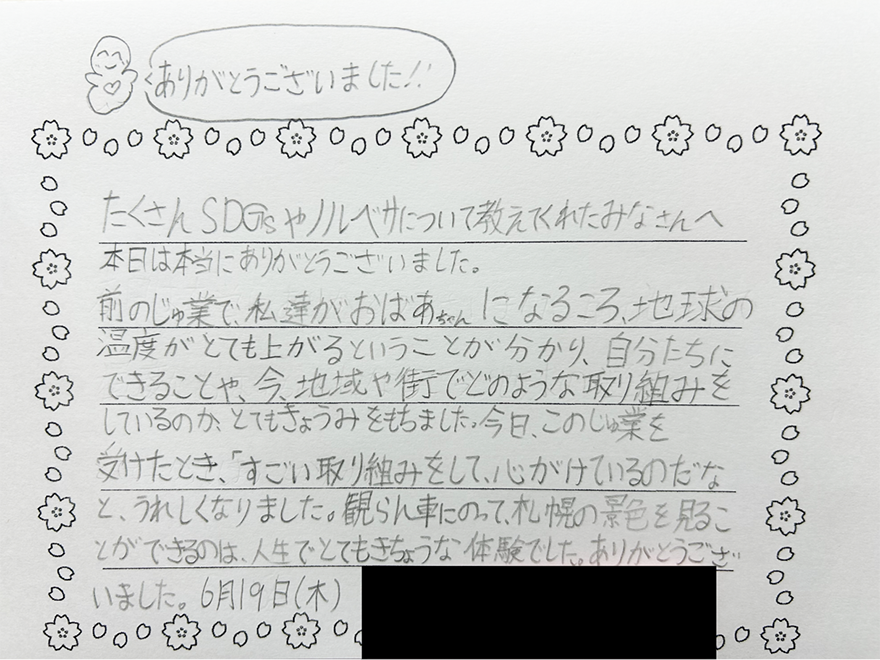 ありがとうございました!!
たくさんSDGsやノルベサについて教えてくれたみなさんへ
本日は本当にありがとうございました。
前のじゅ業で、私達がおばあちゃんになるころ、地球の
温度がとても上がるということが分かり、自分たちに
できることや、今、地域や街でどのような取り組みを
しているのか、とてもきょうみをもちました。今日、このじゅ業を
受けたとき、「すごい取り組みをして、心がけているのだな
と、うれしくなりました。観らん車にのって、札幌の景色を見るこ
とができるのは、人生でとてもきちょうな体験でした。ありがとうござい
いました。6月19日(木)